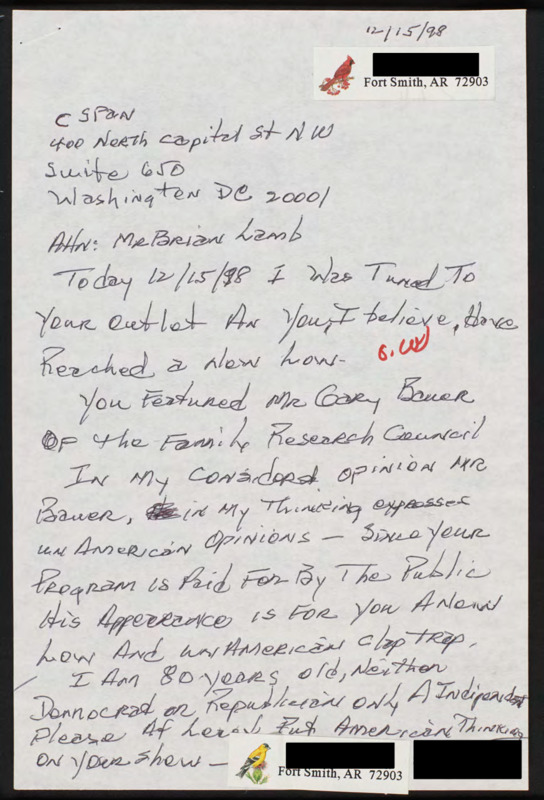 12/15/98
Fort Smith, AR 72903
C SPAN
400 North Capital St NW
Suite 650
Washington DC 20001
Attn: Mr Brian Lamb
Today 12/15/98 I Was Tuned To
Your outlet An You, I believe, Have
Reached a New Low-
You Featured Mr Gary Bauer
OF the Family Research Council
In My Considered opinion Mr
Bauer, in My Thinking expresses
un American Opinions - Since your
Program is Paid For By The Public
His Appearance is For you A New
Low And unAmerican clap trap.
I Am 80 years old, Neither
Democrat or Republician only A Independent
Please At Least Put American Thinking
ON your show -
Fort Smith, AR 72903